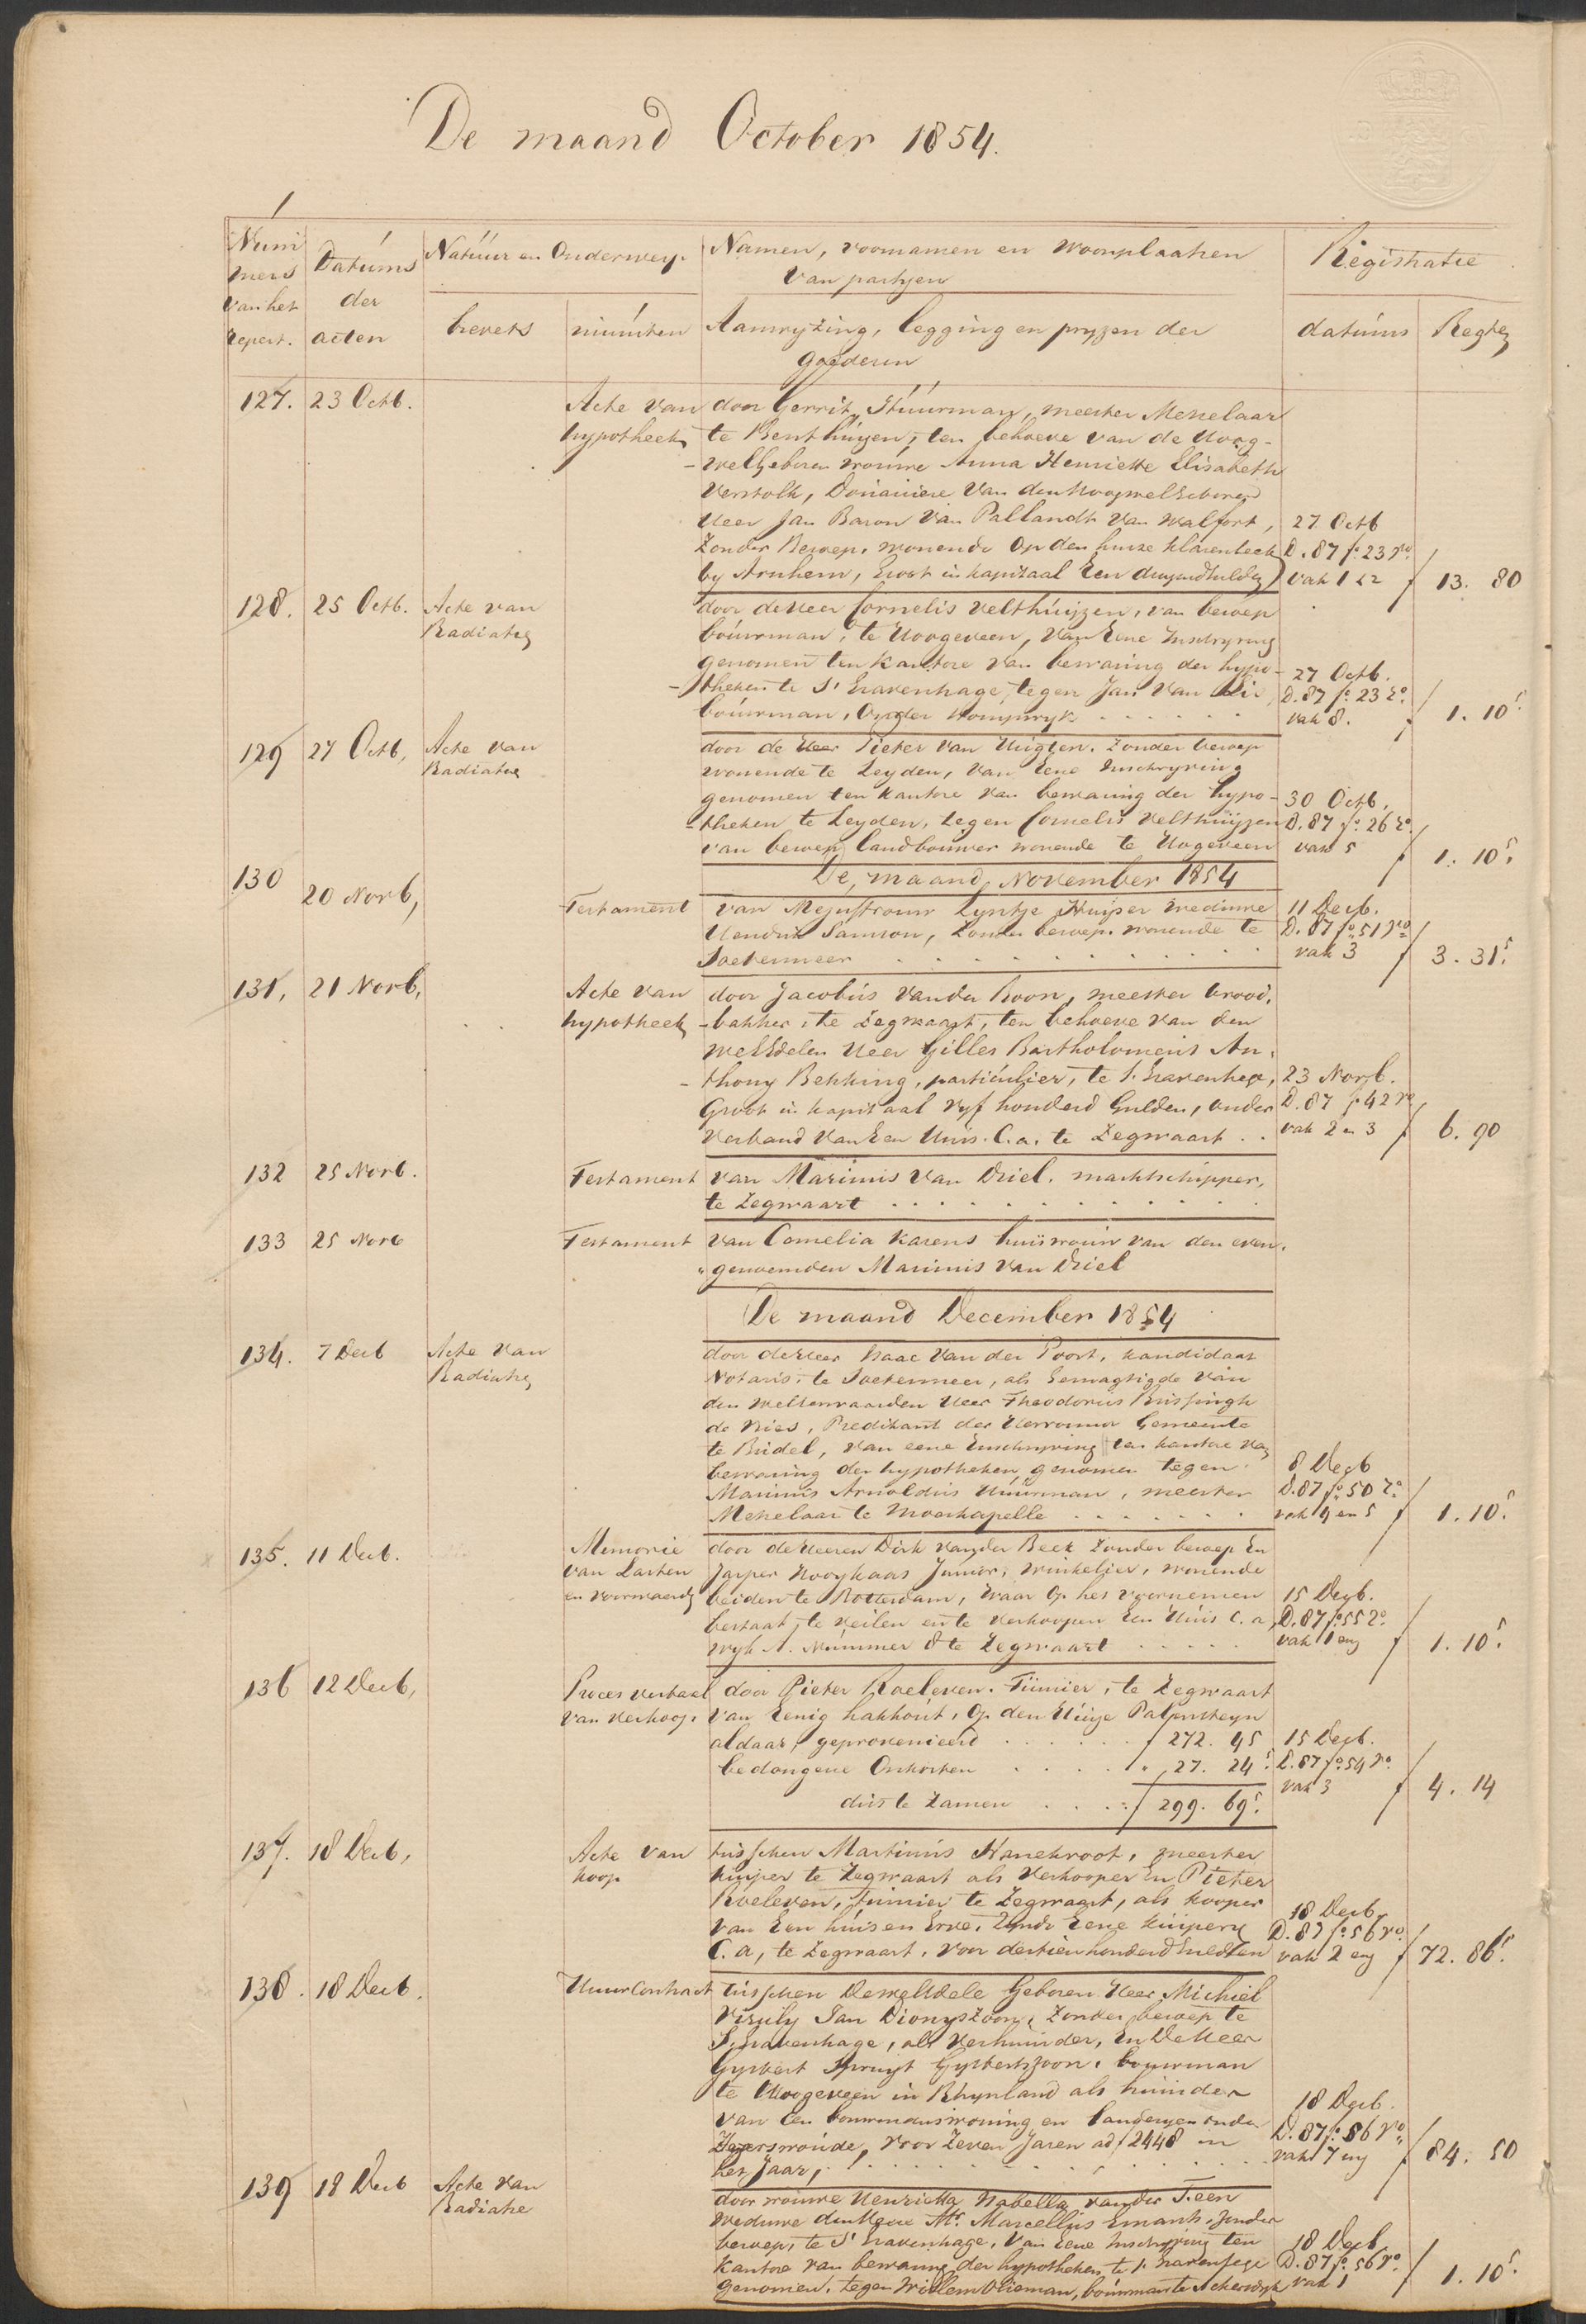 De maand October 1854.
Num
mers
van het
repert.
Datums
der
acten
Natuur en Onderwerp
brevets
minuten
Namen, voornamen en woonplaatsen
van partyen
Aanwyzing, legging en pryzen der
goederen
Registratie
datums
Regten
127. 23 Octb.
Acte van
hypotheek
door Gerrit Stuurman, meester Metselaar
te Benthuizen, ten behoeve van de Hoog-
-welgeboren vrouwe Anna Henriette Elisabeth
Verstolk, Douairiere van den Hoogwelgeboren
Heer Jan Baron van Pallandt van Walfort,
zonder Beroep, wonende op den huize Klarenbeek
by Arnhem, Groot in kapitaal Een duizend Gulden
27 Octb
D. 87 fo. 23 vo
vak 1 & 2
f 13. 80
128. 25 Octb.
Acte van
Radiatie
door de Heer Cornelis Velthuijzen, van beroep
bouwman, te Hoogeveen, van Eene Inschryving
genomen ten kantore van bewaring der hypo-
-theken te S' Gravenhage, tegen Jan van
bouwman, Onder Stompwyk
27 Octb.
D. 87 fo. 23 ro.
vak 8.
f 1. 10 5.
129 27 Octb,
Acte van
Radiatie
door de Heer Pieter van Huigten, zonder beroep
wonende te Leyden, van Eene Inschryving
genomen ten kantore van bewaring der hypo-
-theken te Leyden, tegen Cornelis Velthuijzen
van beroep landbouwer wonende te Hogeveen
30 Octb.
D. 87 fo. 26 ro.
vak 5
f 1. 10 5.
De maand November 1854
130 20 Novb,
Testament
van Mejuffrouw Lyntje Kuijser Weduwe
Hendrik Samson, zonder beroep. wonende te
Soetermeer
11 Decb.
D. 87 fo 51 vo
vak 3
f 3. 31 5.
131, 21 Novb,
Acte van
hypotheek
door Jacobus van der Boon, meester brood.
-bakker, te Zegwaart, ten behoeve van den
WelEdelen Heer Gilles Bartholomeus An.
-thony Bekking, particulier, te s. Gravenhage,
Groot in kapitaal vyf honderd Gulden, onder
Verband van Een Huis. C. a. te Zegwaart . .
23 Novb.
D. 87 fo 42 vo
vak 2 en 3
f 6. 90
132 25 Novb.
Testament
van Marinus van Driel, marktschipper,
te Zegwaart
133 25 Novb
Testament
van Cornelia Karens huisvrouw van den even.
"genoemden Marinus van Driel
De maand December 1854
134. 7 Decb
Acte van
Radiatie
door de Heer Isaac van der Poort, kandidaat
Notaris, te Soetermeer, als Gemagtigde van
den WelEerwaarden Heer Theodorus Bussingh
de Vries, Predikant der Hervormde Gemeente
te Budel, van eene Inschryving ten kantore van
bewaring der hypotheken genomen tegen
Marinus Arnoldus Huurman, meester
Metselaar te Moerkapelle
8 Decb
D. 87 fo 50 ro.
vak 4 en 5
f 1. 10 5.
135. 11 Decb.
Memorie
van Lasten
en voorwaarden
door de Heeren Dirk van der Beek zonder beroep En
Jasper Hooykaas Junior, winkelier, wonende
beiden te Rotterdam, waar op het voornemen
bestaat, te veilen en te verkoopen Een Huis C. a,
wyk A. Nummer 8 te Zegwaart
15 Decb.
D. 87 fo. 55 ro.
vak 1 env
f 1. 10 5.
136 12 Decb,
Proces verbaal
van verkoop.
door Pieter Roeleven. Tuinier, te Zegwaart
van Eenig hakhout, Op den Huize Palensteyn
aldaar, geprovenieerd . . . . f 272. 45
bedongene Onkosten . . . . " 27. 24 5.
dus te zamen . . . . f 299. 69 5.
15 Decb.
D. 87 fo. 54 vo.
vak 3
f 4. 14
137. 18 Decb,
Acte van
koop
tusschen Martinus Hanekroot, meester
kuiper te Zegwaart als Verkooper En Pieter
Roeleven, Tuinier te Zegwaart, als kooper
van Een huis en Erve, zynde Eene kuipery
C. a, te Zegwaart, voor dertien honderd Gulden
18 Decb.
D. 87 fo. 56 vo.
vak 2 env
f 72. 86 5.
138. 18 Decb.
Huur Contract
tusschen DeWelEdele Geboren Heer Michiel
Visuly Jan Dionyszoon, zonder beroep te
S. Gravenhage, als Verhuurder, En De Heer
Gysbert Spruyt Gysbertszoon, bouwman
te Hoogeveen in Rhynland als huurder
van Een bouwmanswoning en landeryen onder
Hazerswoude, voor zeven Jaren ad f 2448 in
het Jaar,
18 Decb.
D. 87 fo. 56 vo.
vak 7 env
f 84. 50
139 18 Decb
Acte van
Radiatie
door vrouwe Henrietta Isabella van der Feen
Weduwe den Heer Mr. Marcellus Emants, zonder
beroep, te S' Gravenhage, van Eene Inschryving ten
kantore van bewaring der hypotheken te s. Gravenhage
genomen, tegen Willem Vlieman, bouwman te
18 Decb
D. 87 fo. 56 vo.
vak 1
f 1. 10 5.